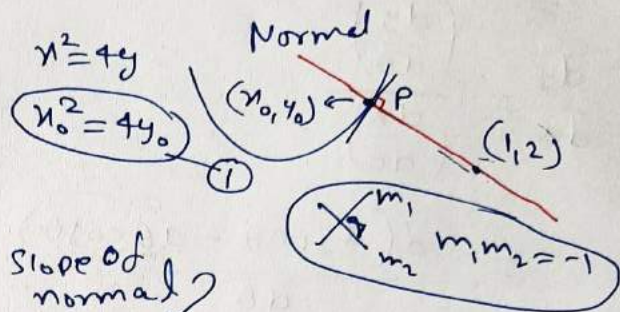 Normal
x²=4y
x₀²=4y₀
①
(x₀,y₀) ← P
(1,2)
m₁
m₂
m₁m₂=-1
slope of
normal?